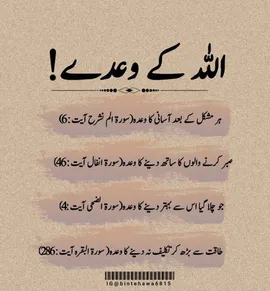 اللہ کے وعدے!
ہر مشکل کے بعد آسانی کا وعدہ(سورۃ الم نشرح آیت :6)
صبر کرنے والوں کا ساتھ دینے کا وعدہ(سورۃ انفال آیت :46)
جو چلا گیا اس سے بہتر دینے کا وعدہ(سورۃ الضحی آیت :4)
طاقت سے بڑھ کر تکلیف نہ دینے کا وعدہ(سورۃ البقرہ آیت :286)
IG@bintehawa6815